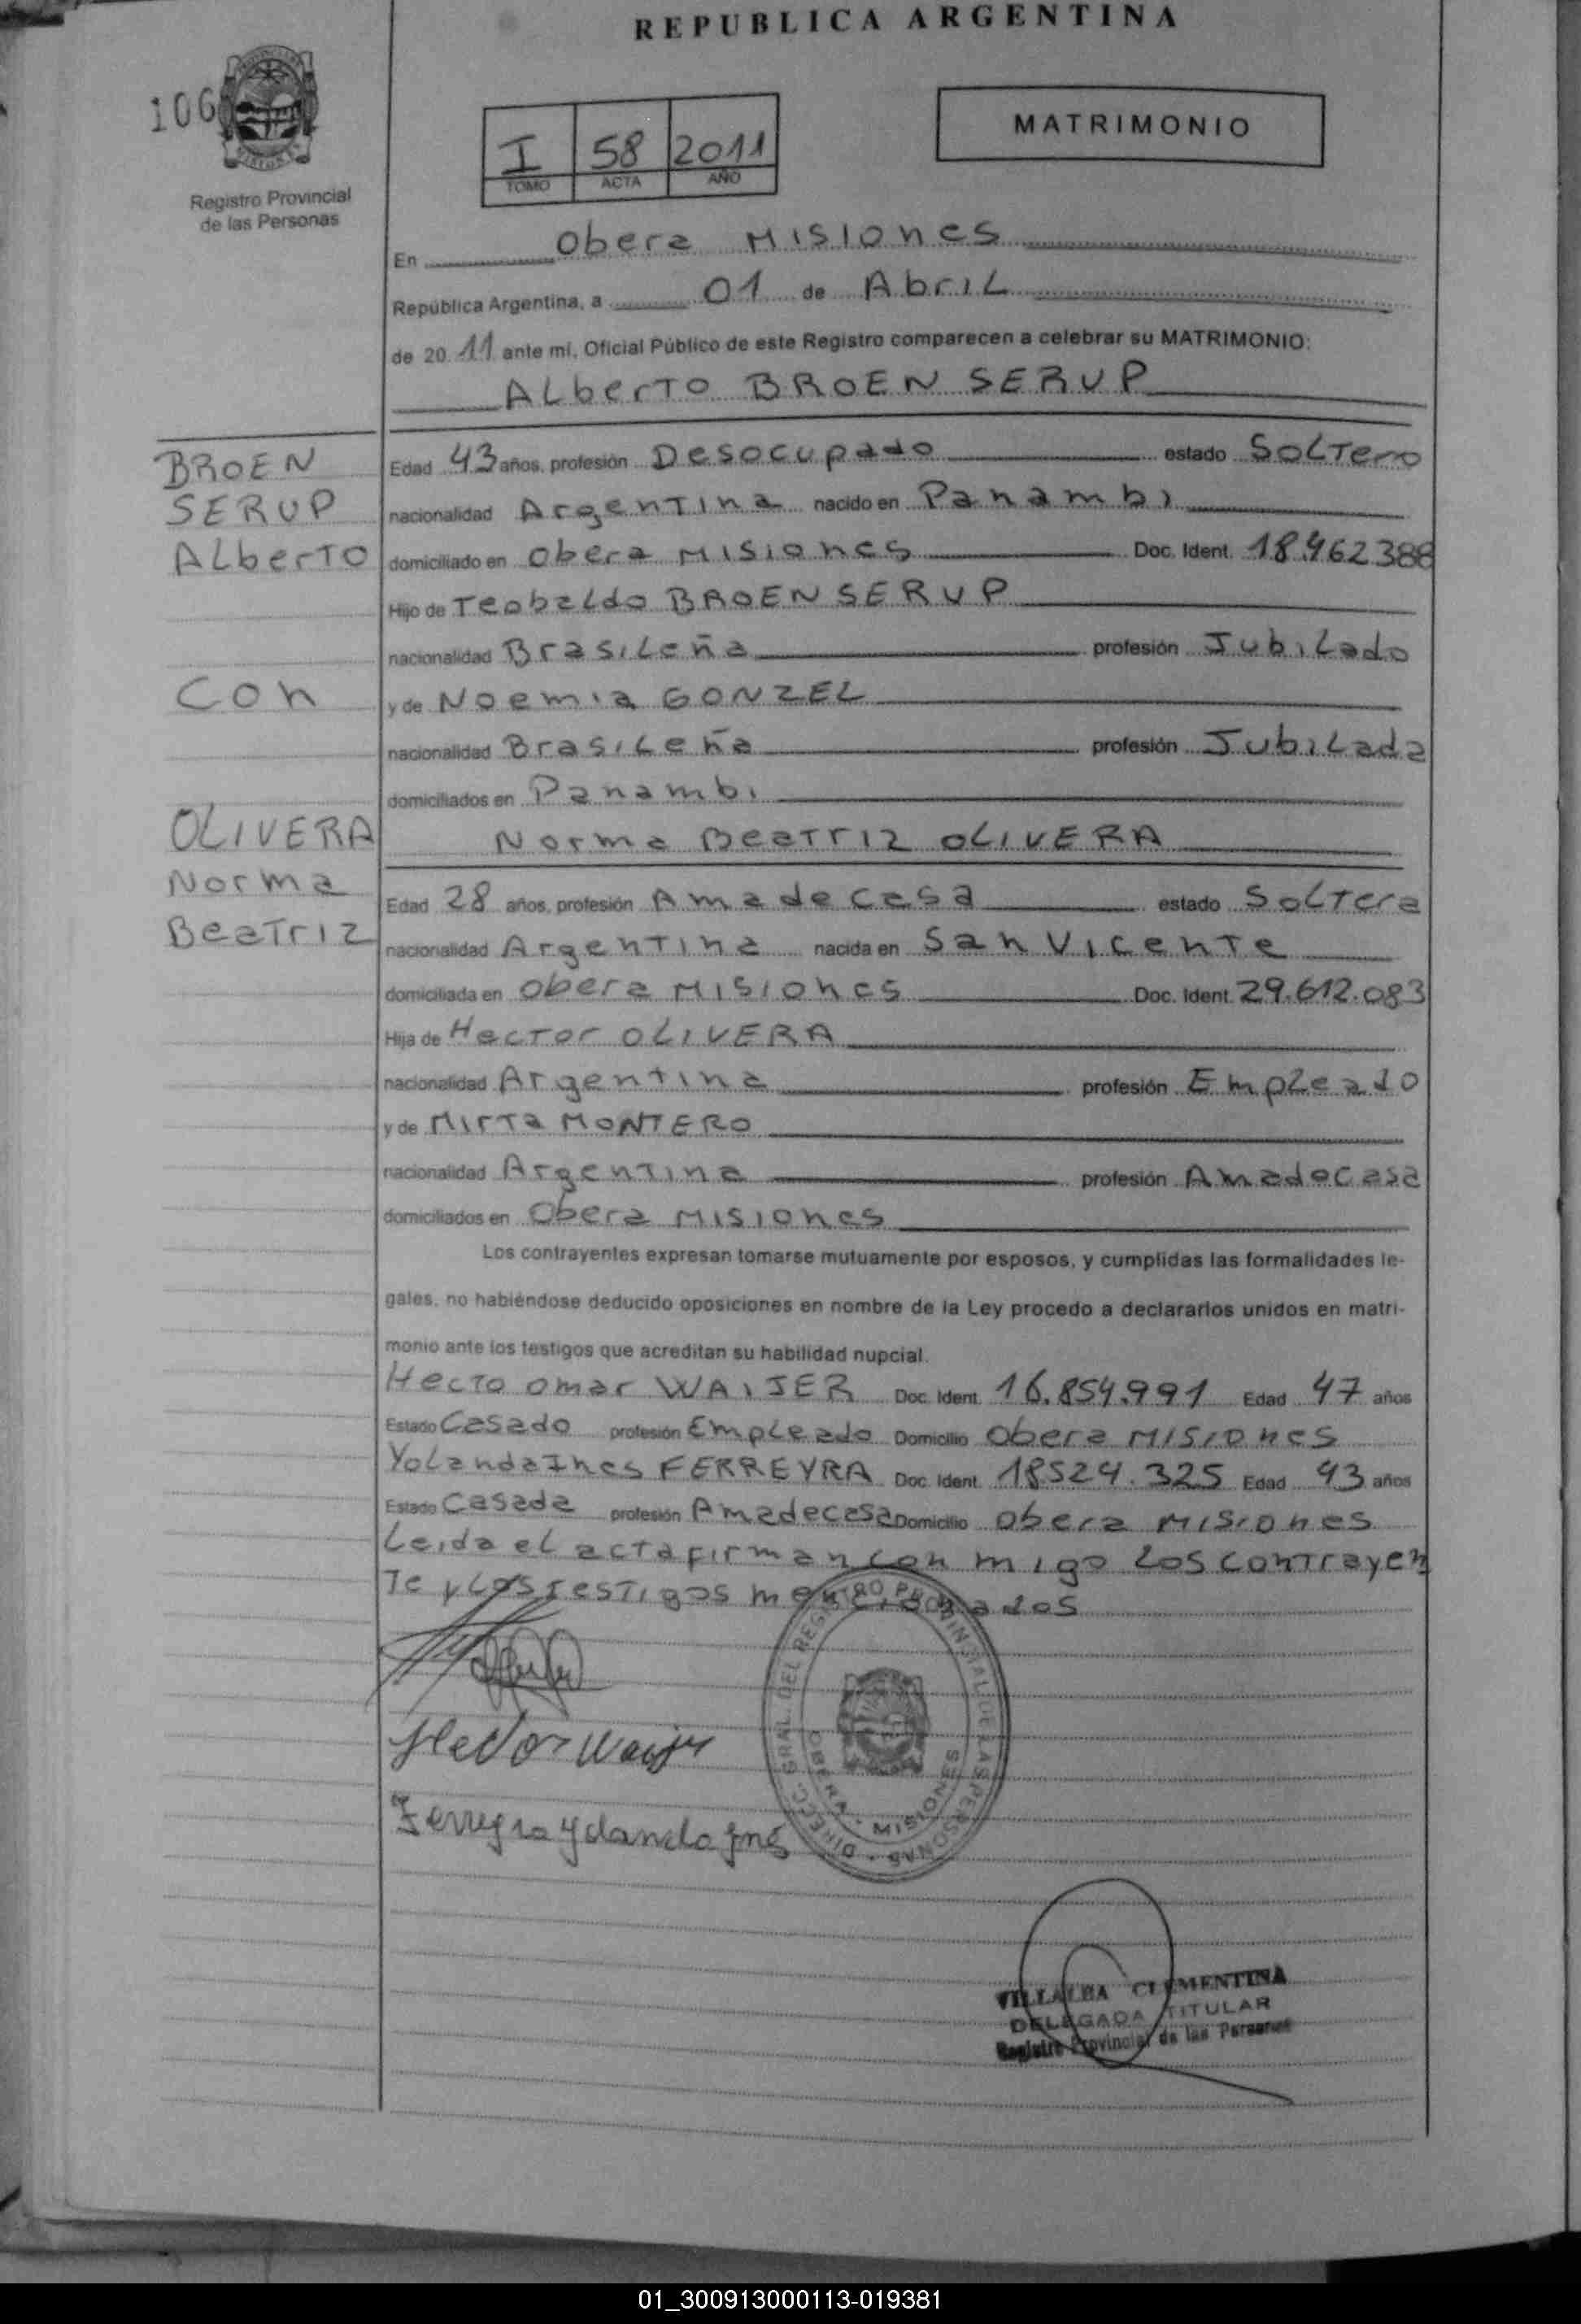 REPUBLICA ARGENTINA
106
Registro Provincial
de las Personas
I 58 2011
TOMO ACTA AÑO
MATRIMONIO
En Obera Misiones
República Argentina, a 01 de Abril
de 20 11 ante mí, Oficial Público de este Registro comparecen a celebrar su MATRIMONIO:
Alberto BROEN SERUP
BROEN
SERUP
Alberto
Con
OLIVERA
Norma
Beatriz
Edad 43 años, profesión Desocupado estado Soltero
nacionalidad Argentina nacido en Panambi
domiciliado en Obera Misiones Doc. Ident. 18.462.388
Hijo de Teobaldo BROEN SERUP
nacionalidad Brasileña profesión Jubilado
y de Noemia GONZEL
nacionalidad Brasileña profesión Jubilada
domiciliados en Panambi
Norma Beatriz OLIVERA
Edad 28 años, profesión Ama de casa estado Soltera
nacionalidad Argentina nacida en San Vicente
domiciliada en Obera Misiones Doc. Ident. 29.612.083
Hija de Hector OLIVERA
nacionalidad Argentina profesión Empleado
y de Mirta MONTERO
nacionalidad Argentina profesión Ama de casa
domiciliados en Obera Misiones
Los contrayentes expresan tomarse mutuamente por esposos, y cumplidas las formalidades le-
gales, no habiéndose deducido oposiciones en nombre de la Ley procedo a declararlos unidos en matri-
monio ante los testigos que acreditan su habilidad nupcial.
Hecto Omar WAIJER Doc. Ident. 16.854.991 Edad 47 años
Estado Casado profesión Empleado Domicilio Obera Misiones
Yolanda Ines FERREYRA Doc. Ident. 18524.325 Edad 43 años
Estado Casada profesión Ama de casa Domicilio Obera Misiones
Leida el acta firman con migo los contrayen
te y los testigos mencionados
DIRECC. GRAL. DEL REGISTRO PROVINCIAL DE LAS PERSONAS
OBERA - MISIONES
Hector Waijer
Ferreyra Yolanda Ines
VILLALBA CLEMENTINA
DELEGADA TITULAR
Registro Provincial de las Personas
01_300913000113-019381